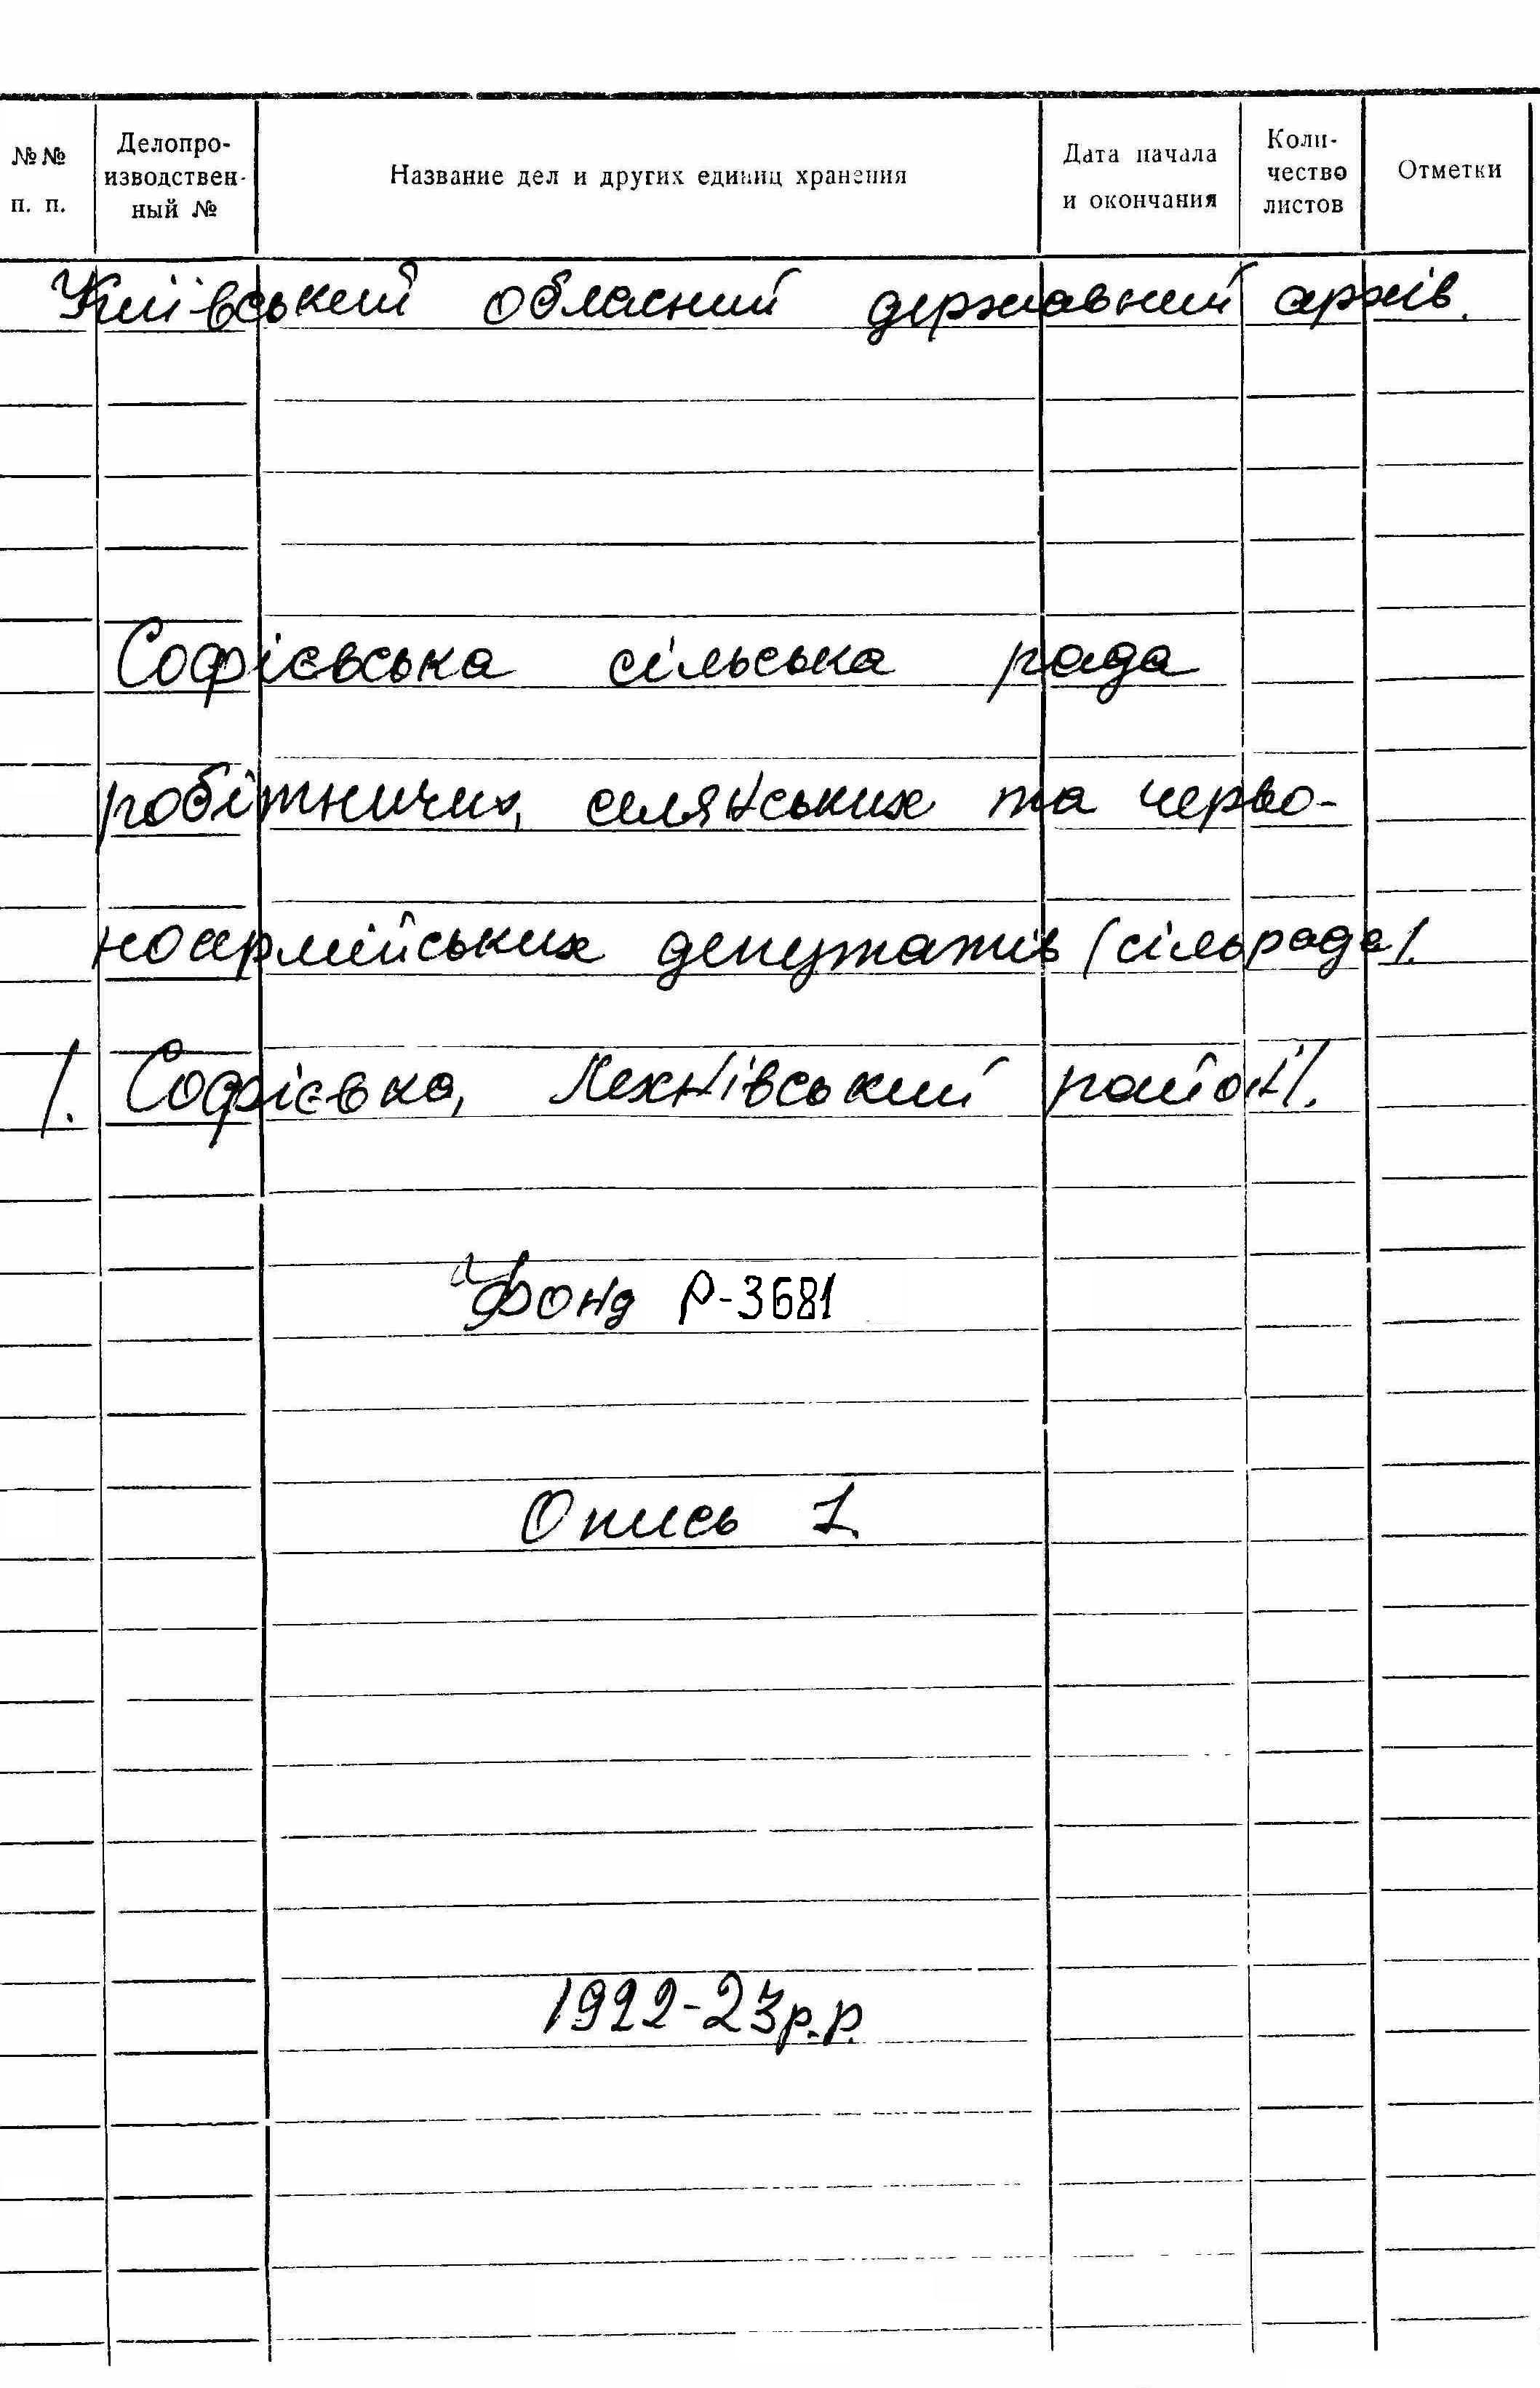 №№ п. п.
Делопро-
изводствен-
ный №
Название дел и других единиц хранения
Дата начала
и окончания
Коли-
чество
листов
Отметки
Київський обласний державний архів.
Софієвська сільська рада
робітничих, селянських та черво-
ноармійських депутатів /сільрада/.
/с. Софієвка, Лехнівський район/.
Фонд Р-3681
Опись 1.
1922-23р.р.